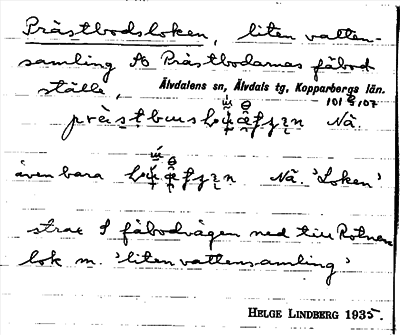 Prästbodsloken, liten vatten-
samling Ö Prästbodarnas fäbod
ställe,
Älvdalens sn, Älvdals tg, Kopparbergs län.
Nä.
även bara Nä. 'Loken'
strax S fäbodvägen ned till Rotnen
lok m. 'liten vattensamling'
HELGE LINDBERG 1935.